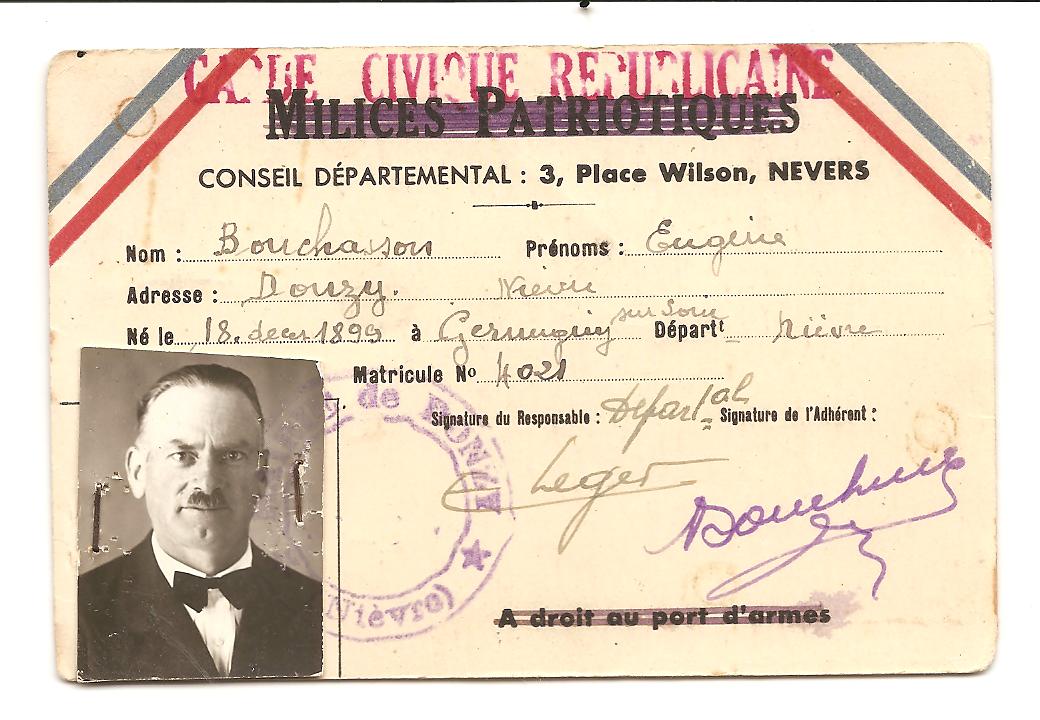 GARDE CIVIQUE REPUBLICAINE
MILICES PATRIOTIQUES
CONSEIL DÉPARTEMENTAL : 3, Place Wilson, NEVERS
Nom : Bouchasson Prénoms : Eugène
Adresse : Donzy. Nièvre
Né le 18. dec 1899 à Germigny sur Loire Départt Nièvre
Matricule No 4021
Signature du Responsable : Departal Signature de l'Adhérent :
Leger
de DONZY
(Nièvre)
A droit au port d'armes